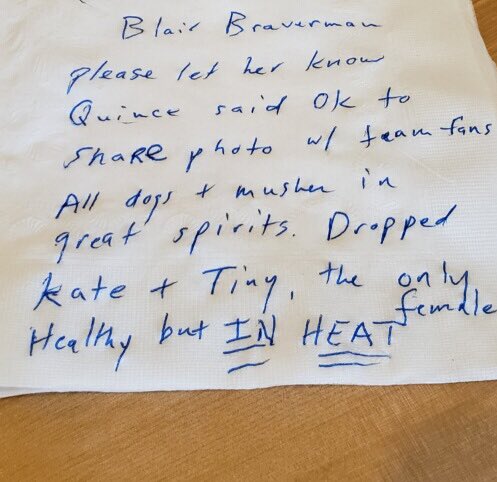 Blair Braverman
please let her know
Quince said OK to
share photo w/ team fans
All dogs + musher in
great spirits. Dropped
Kate + Tiny, the only
female
Healthy but IN HEAT